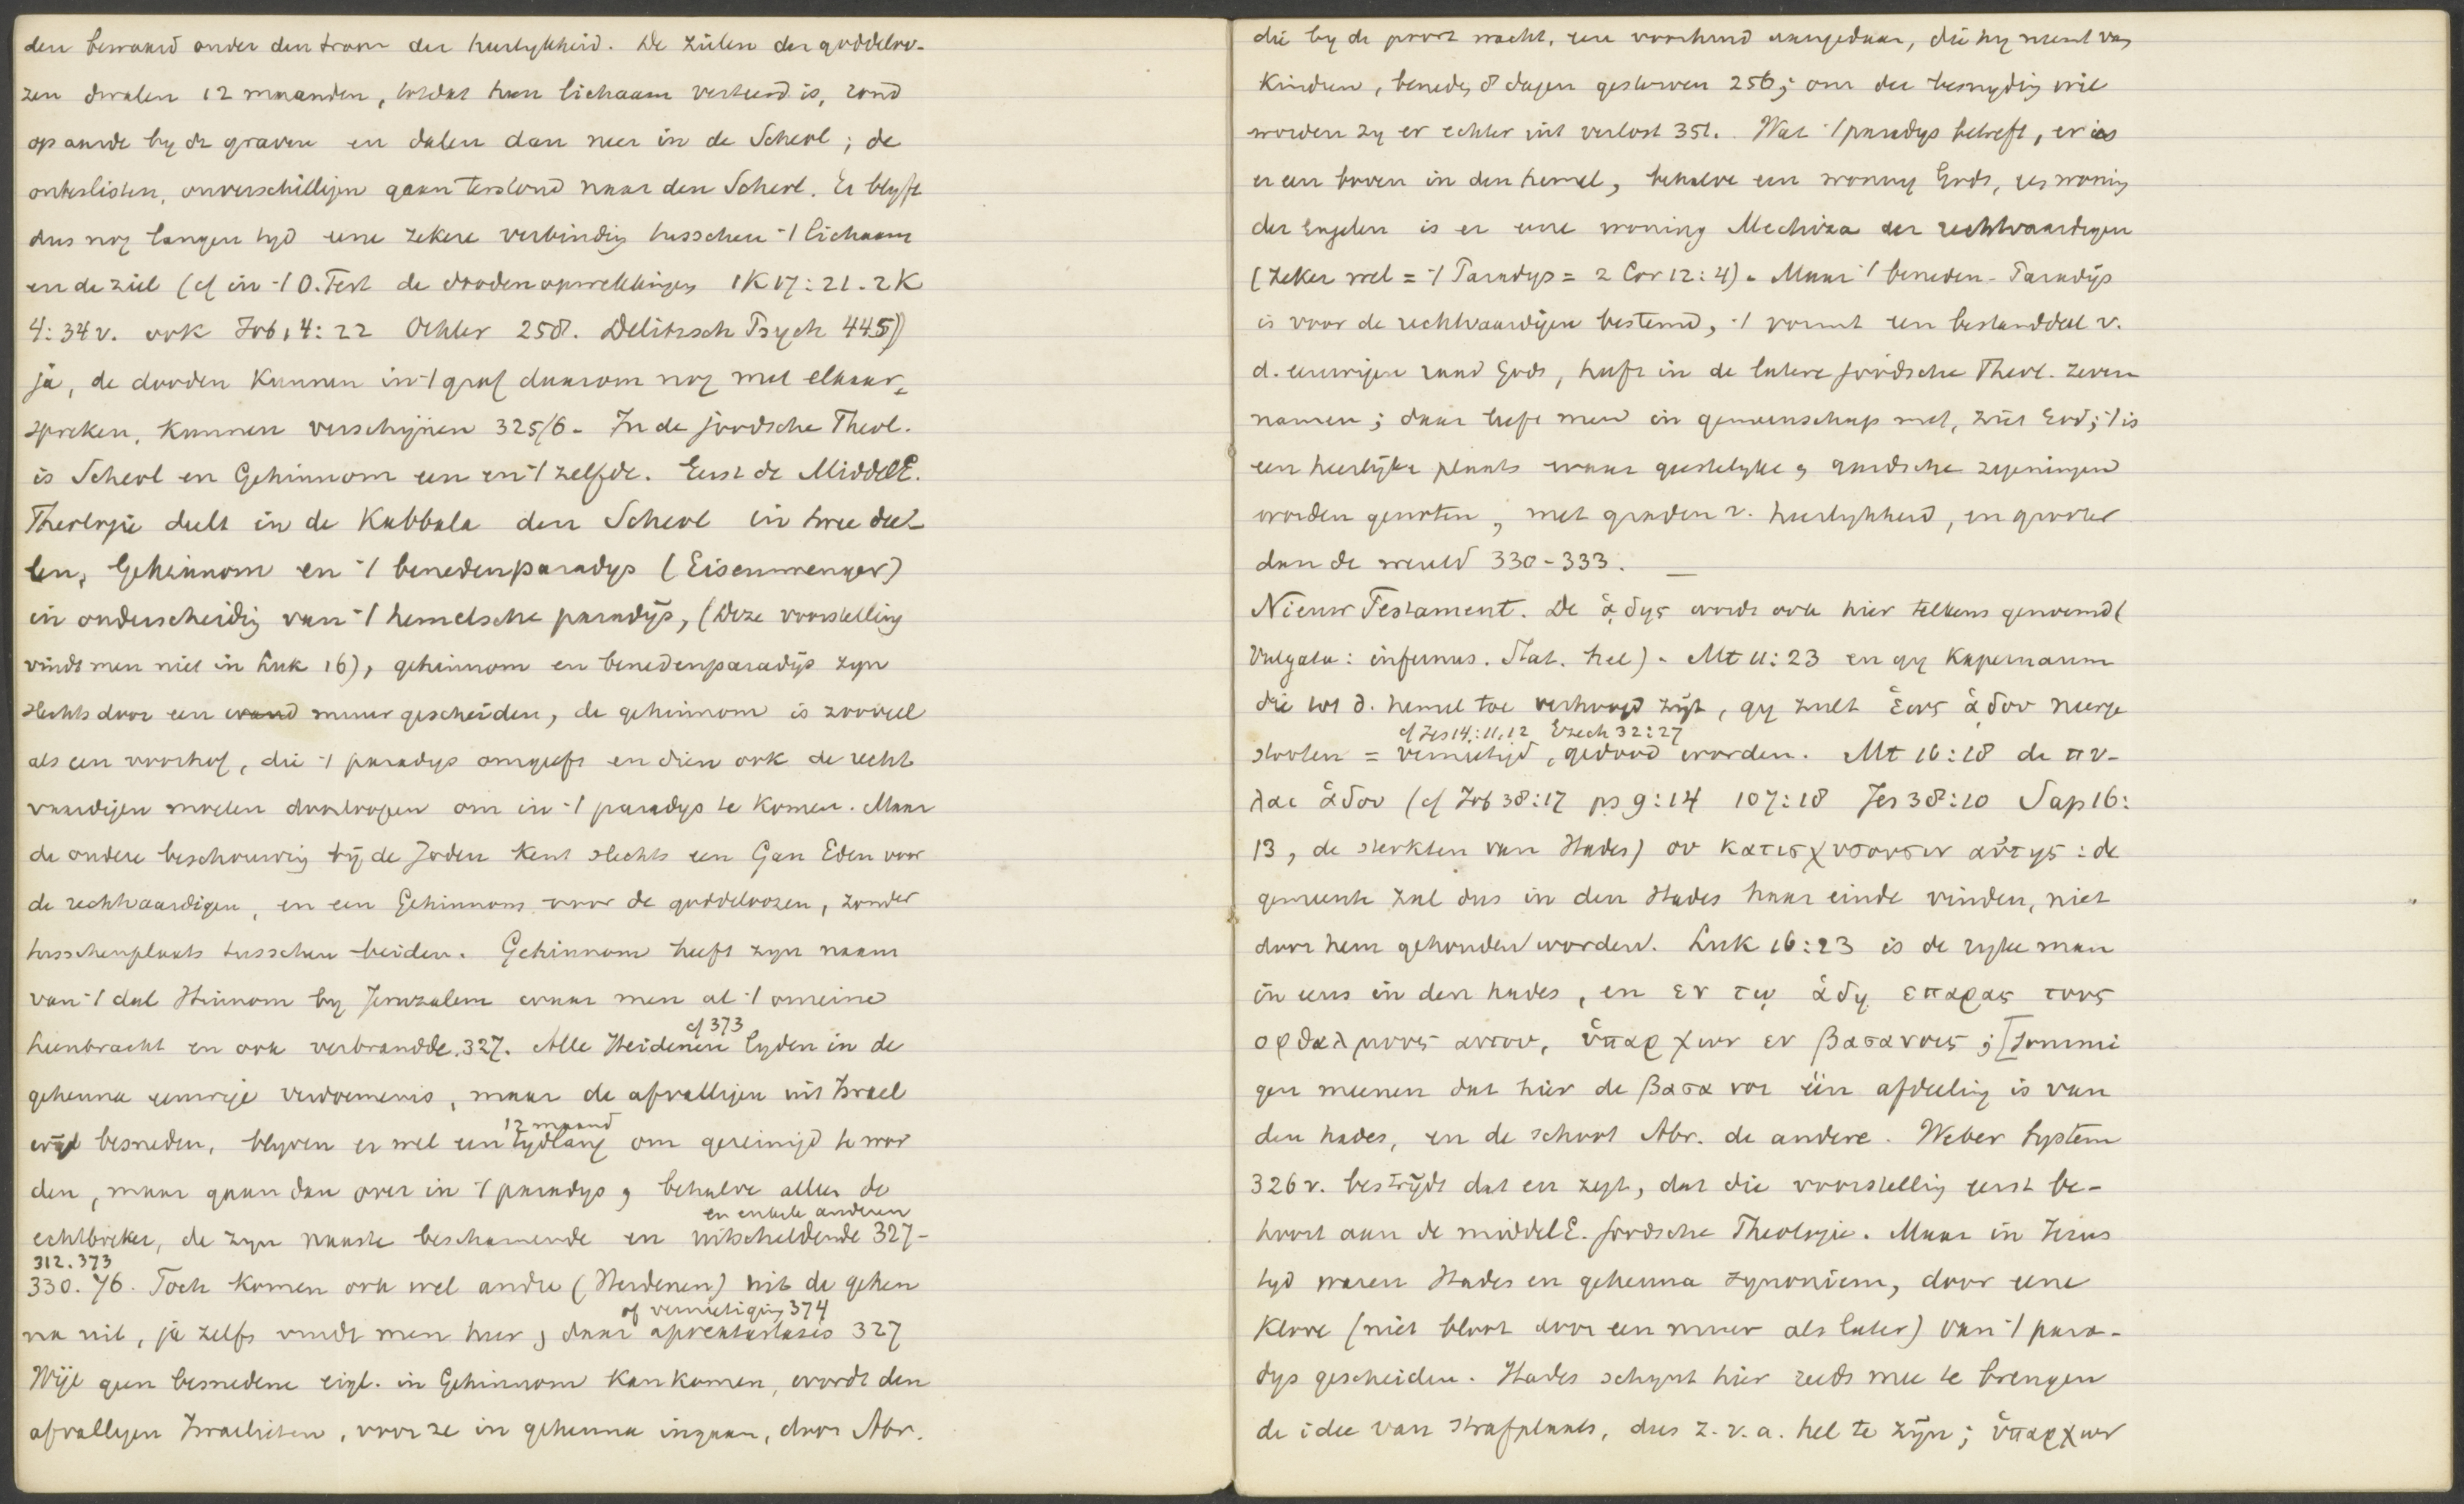 den bewaard onder den troon der heerlykheid. De zielen der goddeloo-
zen dwalen 12 maanden, totdat hun lichaam verteerd is, rond
op aarde by de graven en dalen dan neer in de Scheol; de
onbeslisten, onverschilligen gaan terstond naar den Scheol. Er blyft
dus nog langen tyd eene zekere verbindig tusschen 't lichaam
en de ziel (cf in 't O. Test de doodenopwekkingen 1K 17:21. 2K
4:34v. ook Job 14:22 Oehler 258. Delitzsch Psych 445))
ja, de dooden kunnen in 't graf daarom nog met elkaar
spreken, kunnen verschijnen 325/6. In de joodsche Theol.
is Scheol en Gehinnom een en 't zelfde. Eerst de MiddelE.
Theologie deelt in de Kabbala den Scheol in twee dee-
len, Gehinnom en 't benedenparadys (Eisenmenger)
in onderscheidig van 't hemelsche paradijs, (Deze voorstelling
vindt men niet in Luk 16), gehinnom en benedenparadijs zyn
slechts door een wand muur gescheiden, de gehinnom is zooveel
als een voorhof, die 't paradys omgeeft en dien ook de recht
vaardigen moeten doorloopen om in 't paradys te komen. Maar
de andere beschouwing bij de Joden kent slechts een Gan Eden voor
de rechtvaardigen, en een Gehinnom voor de goddeloozen, zonder
tusschenplaats tusschen beiden. Gehinnom heeft zyn naam
van 't dal Hinnom by Jeruzalem waar men al 't onreine
heenbracht en ook verbrandde. 327. Alle Heidenen cf 373 lyden in de
gehenna eeuwige verdoemenis, maar de afvalligen uit Israel
wijl besneden, blyven er wel een tydlang 12 maand om gereinigd te wor
den, maar gaan dan over in 't paradys, behalve alleen de
echtbreker, de zyn naaste beschamende en uitscheldende en enkele anderen 327-
330. 76. 312. 373 Toch komen ook wel andre (Heidenen) uit de gehen
na uit, ja zelfs vindt men hier, daar apokatastasis of vernietiging 374 327
Wijl geen besnedene eigl. in Gehinnom kan komen, wordt den
afvalligen Israelieten, voor ze in gehenna ingaan, door Abr.
die by de poort wacht, eene voorhuid aangedaan, die hy neemt van
kindren, beneden 8 dagen gestorven 256; om der besnydig wil
worden zy er echter uit verlost 351. Wat 't paradys betreft, er is
er een boven in den hemel, behalve een woning Gods, een woning
der Engelen is er eene woning Mechiza der rechtvaardigen
(zeker wel = 't Paradys = 2 Cor 12:4). Maar 't beneden-Paradijs
is voor de rechtvaardigen bestemd, 't vormt een bestanddeel v.
d. eeuwigen raad Gods, heeft in de latere joodsche Theol. zeven
namen; daar leeft men in gemeenschap met, ziet God; 't is
een heerlijke plaats waar geestelyke en aardsche zegeningen
worden genoten, met graden v. heerlykheid, en grooter
dan de wereld 330-333. —
Nieuw Testament. De ᾅδης wordt ook hier telkens genoemd (
Vulgata: infernus. Stat. hel). Mt 11:23 en gy Kapernaum
die tot d. hemel toe verhoogd zijt, gy zult ἕως ᾅδου neerge
stooten = vernietigd, gedood worden. cf Jes 14:11,12 Ezech 32:27 Mt 16:18 de πυ-
λαι ᾅδου (cf Job 38:17 ps 9:14 107:18 Jes 38:10 Sap 16:
13, de sterkten van Hades) ου κατισχυσουσιν αὐτης: de
gemeente zal dus in den Hades haar einde vinden, niet
door hem gehouden worden. Luk 16:23 is de ryke man
in eens in den hades, en εν τῳ ᾅδῃ επαρας τους
οφθαλμους αυτου, ὑπαρχων εν βασανοις; [Sommi
gen meenen dat hier de βασανοι één afdeeling is van
den hades, en de schoot Abr. de andere. Weber System
326v. bestrijdt dat en zegt, dat die voorstellig eerst be-
hoort aan de middelE. joodsche Theologie. Maar in Jezus
tyd waren Hades en gehenna synoniem, door eene
klove (niet bloot door een muur als later) van 't para-
dys gescheiden. Hades schynt hier reeds mee te brengen
de idee van strafplaats, dus z.v.a. hel te zijn; ὑπαρχων